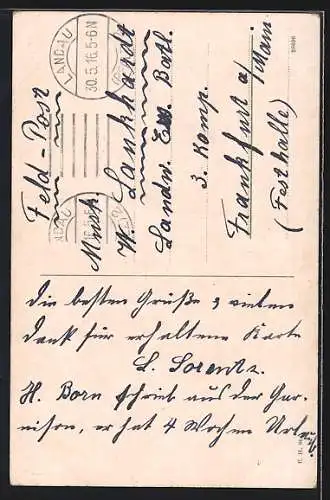 Feld-Post
LANDAU
30.5.16.5-6N
Musk.
W. Lankhardt
Landw. Ers. Batl.
3. Komp.
Frankfurt a/Main
(Festhalle)
Die besten Grüße u. vielen
Dank für erhaltene Karte
L. Lorentz.
H. Born schrieb aus der Gar-
nison, er hat 4 Wochen Urlaub.